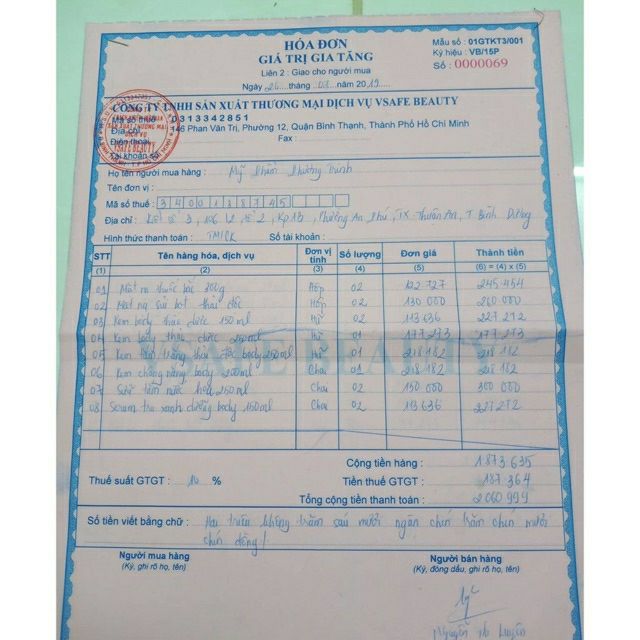 HÓA ĐƠN
GIÁ TRỊ GIA TĂNG
Liên 2 : Giao cho người mua
Ngày 26 tháng 03 năm 2019
Mẫu số : 01GTKT3/001
Ký hiệu : VB/15P
Số : 0000069
CÔNG TY TNHH SẢN XUẤT THƯƠNG MẠI DỊCH VỤ VSAFE BEAUTY
Mã số thuế 0313342851
Địa chỉ 146 Phan Văn Trị, Phường 12, Quận Bình Thạnh, Thành Phố Hồ Chí Minh
Điện thoại Fax :
Tài khoản số
Họ tên người mua hàng : Mỹ Phẩm Phương Trinh
Tên đơn vị :
Mã số thuế : 3400188745
Địa chỉ : Số 3, 106 Kp 1B, Phường An Phú, TX Thuận An, T Bình Dương
Hình thức thanh toán : TM/CK Số tài khoản :
STT Tên hàng hóa, dịch vụ Đơn vị tính Số lượng Đơn giá Thành tiền
(1) (2) (3) (4) (5) (6) = (4) x (5)
01 Mặt nạ thuốc bắc 300g Hộp 02 122 727 245 454
02 Mặt nạ sủi bọt thải độc Hộp 02 130 000 260 000
03 Kem body thảo dược 150ml Hũ 02 113 636 227 272
04 Kem body thảo dược 250ml Hũ 01 177 273 177 273
05 Kem trắng body 250ml Hũ 01 218 182 218 182
06 Kem chống nắng body 200ml Chai 01 218 182 218 182
07 Sữa tắm nước hoa 250ml Chai 02 150 000 300 000
08 Serum trà xanh dưỡng body 150ml Chai 02 113 636 227 272
SAFE BEAUTY
Cộng tiền hàng : 1 873 635
Thuế suất GTGT : 10 % Tiền thuế GTGT : 187 364
Tổng cộng tiền thanh toán : 2 060 999
Số tiền viết bằng chữ : Hai triệu không trăm sáu mươi ngàn chín trăm chín mươi
chín đồng!
Người mua hàng
(Ký, ghi rõ họ, tên)
Người bán hàng
(Ký, đóng dấu, ghi rõ họ, tên)